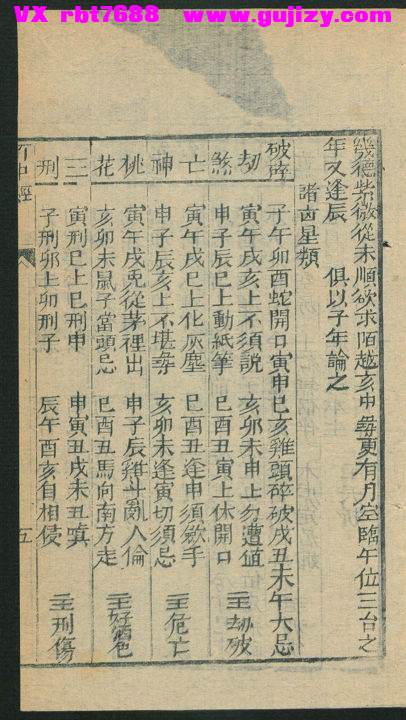 VX rbt7688 www.gujizy.com
幾德紫微從未順欲求陌越亥申尋更有月空臨午位三台之
年又逢辰 俱以子年論之
諸凶星類
破碎 子午卯酉蛇開口寅申巳亥雞頭碎破戌丑未午大忌
劫煞 寅午戌亥上不須說 亥卯未申上勿遭值
申子辰巳上動紙筆 巳酉丑寅上休開口 主劫破
亡神 寅午戌巳上化灰塵 巳酉丑逢申須歛手
申子辰亥上不堪尋 亥卯未逢寅切須忌 主危亡
桃花 寅午戌兔從茅裡出 申子辰雞斗亂人倫
亥卯未鼠子當頭忌 巳酉丑馬向南方走 主好酒色
三刑 寅刑巳上巳刑申 申寅丑戌未丑嗔
子刑卯上卯刑子 辰午酉亥自相侵 主刑傷
五